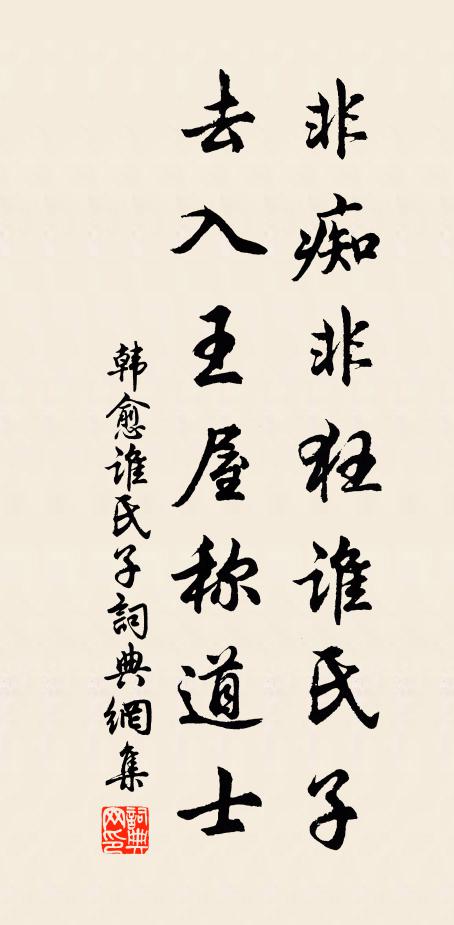 非痴非狂谁氏子
去入王屋称道士
韩愈谁氏子詞典網集
詞典网印